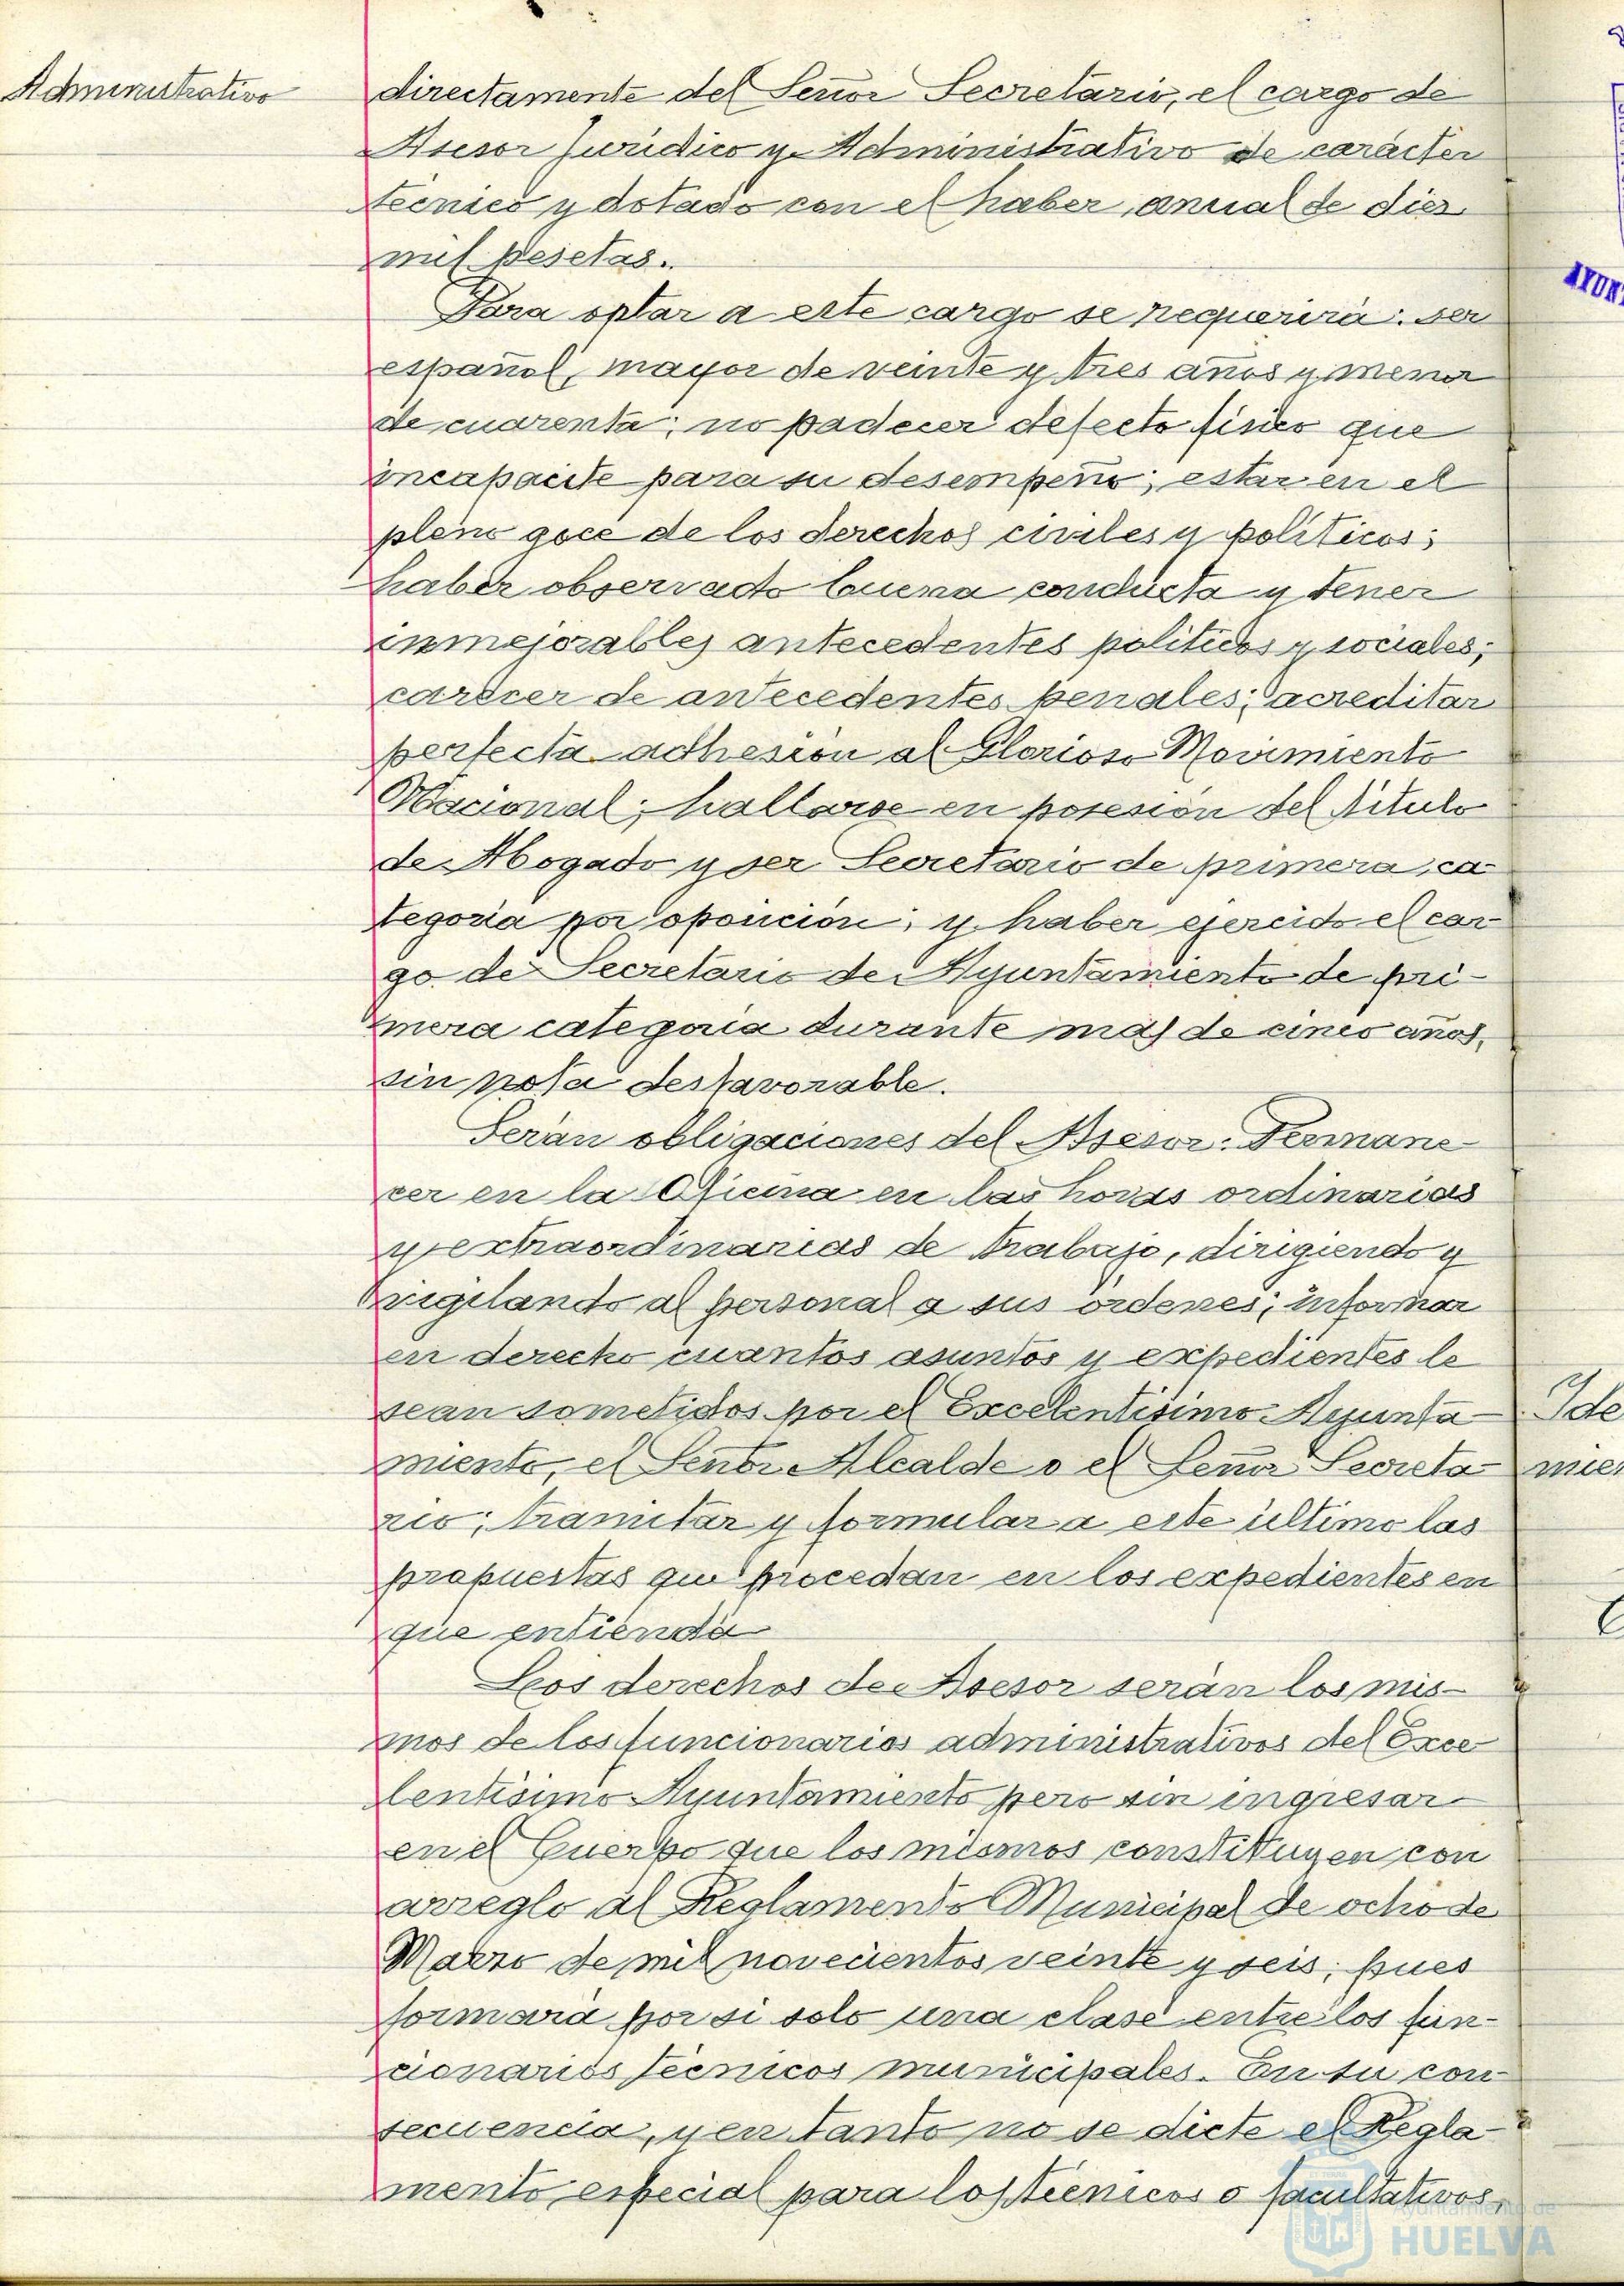 Administrativo
directamente del Señor Secretario, el cargo de
Asesor Jurídico y Administrativo de carácter
técnico y dotado con el haber anual de diez
mil pesetas.
Para optar a este cargo se requerirá: ser
español, mayor de veinte y tres años y menor
de cuarenta; no padecer defecto físico que
incapacite para su desempeño; estar en el
pleno goce de los derechos civiles y políticos;
haber observado buena conducta y tener
inmejorables antecedentes politicos y sociales;
carecer de antecedentes penales; acreditar
perfecta adhesión al Glorioso Movimiento
Nacional; hallarse en posesión del titulo
de Abogado y ser Secretario de primera ca
tegoria por oposición; y haber ejercido el car
go de Secretario de Ayuntamiento de pri-
mera categoria durante mas de cinco años,
sin nota desfavorable.
Serán obligaciones del Asesor: Permane-
cer en la Oficina en las horas ordinarias
y extraordinarias de trabajo, dirigiendo y
vigilando al personal a sus ordenes; informar
en derecho cuantos asuntos y expedientes le
sean sometidos por el Excelentísimo Ayunta-
miento, el Señor Alcalde o el Señor Secreta-
rio; tramitar y formular a este último las
propuestas que procedan en los expedientes en
que entienda
Los derechos del Asesor serán los mis-
mos de los funcionarios administrativos del Exce
lentísimo Ayuntamiento pero sin ingresar
en el Cuerpo que los mismos constituyen con
arreglo al Reglamento Municipal de ocho de
Marzo de mil novecientos veinte y seis; pues
formará por si solo una clase entre los fun-
cionarios técnicos municipales. En su con-
secuencia, y en tanto no se dicte el Regla-
mento especial para los técnicos o facultativos,
AYUN
Ide
mie
Ayuntamiento de
HUELVA